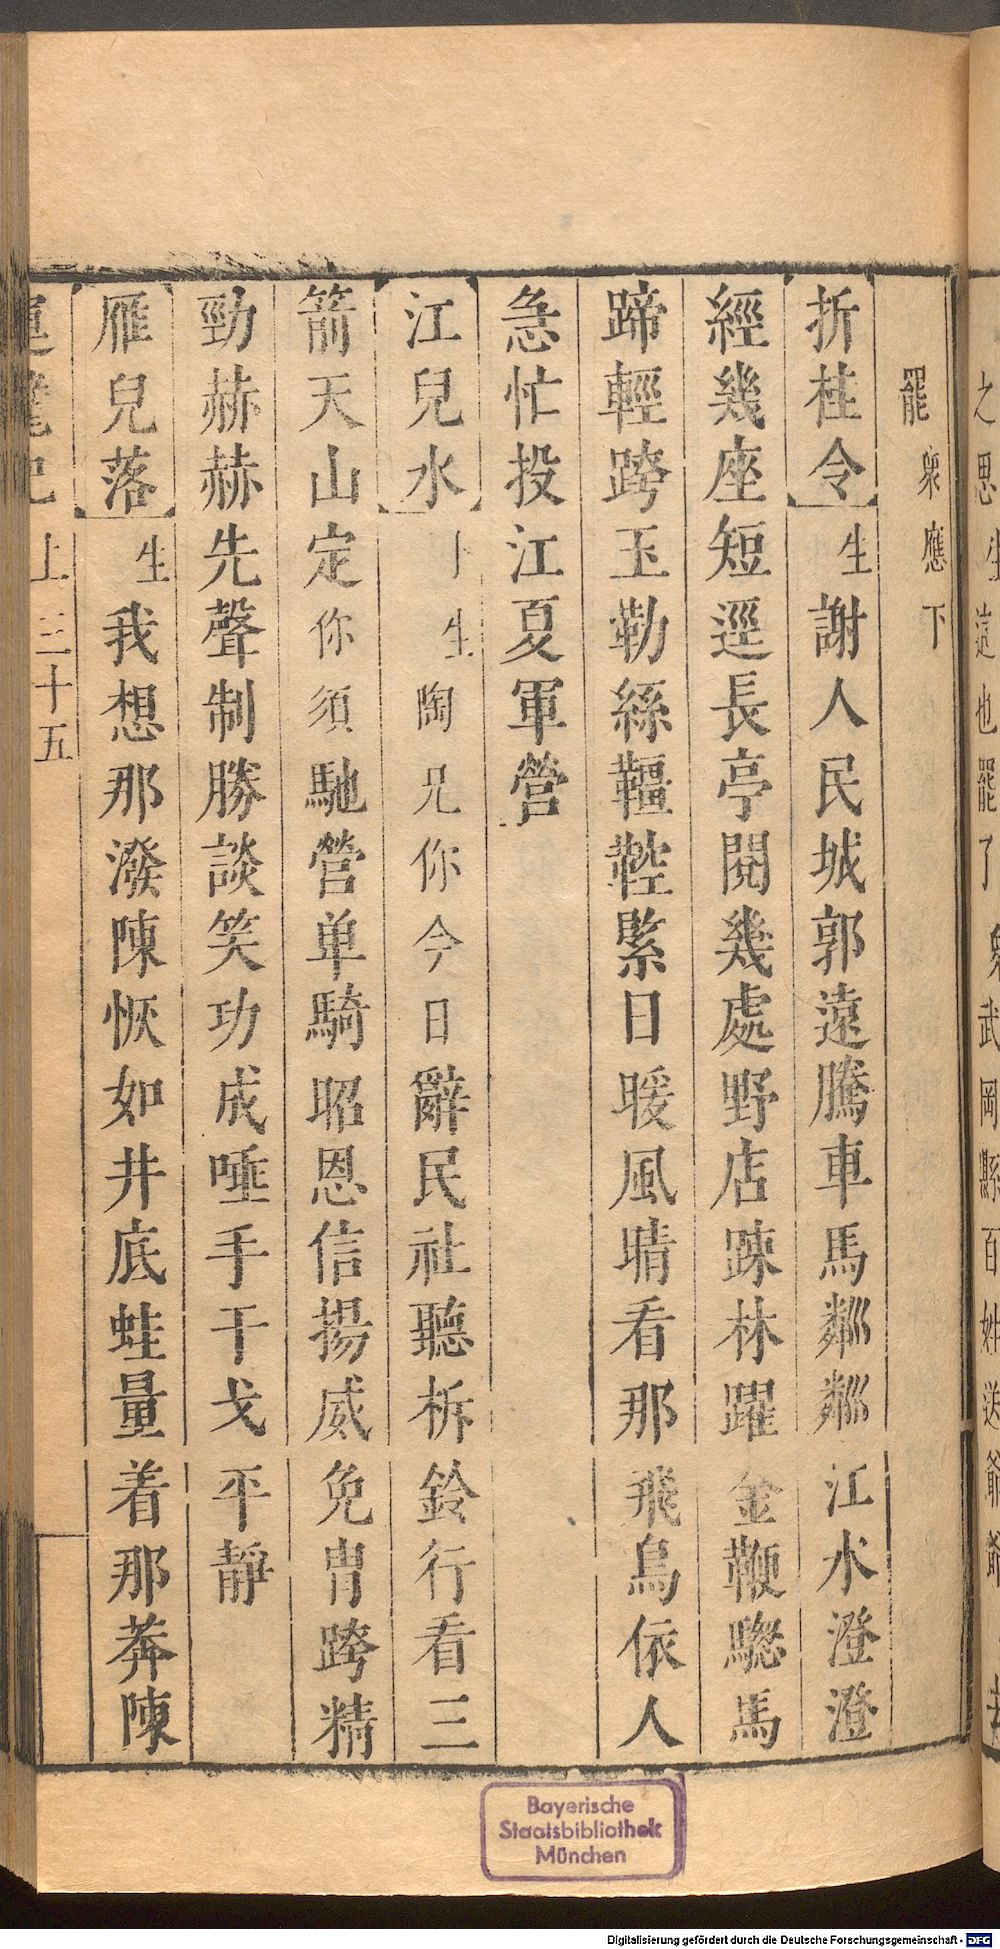 之思 生 這也罷了 武岡縣百姓送爺爺
罷 衆應下
折桂令 生 謝人民城郭遠騰車馬粼粼江水澄澄
經幾座短逕長亭閱幾處野店踈林躍金鞭驄馬
蹄輕跨玉勒絲韁鞚緊日暖風晴看那飛鳥依人
急忙投江夏軍營
江兒水 卜 生 陶兄你今日辭民社聽柝鈴行看三
箭天山定你須馳營单騎昭恩信揚威免冑跨精
勁赫赫先聲制勝談笑功成唾手干戈平靜
雁兒落 生 我想那潑陳恢如井底蛙量着那莽陳
上 三十五
Bayerische
Staatsbibliothek
München
Digitalisierung gefördert durch die Deutsche Forschungsgemeinschaft - DFG